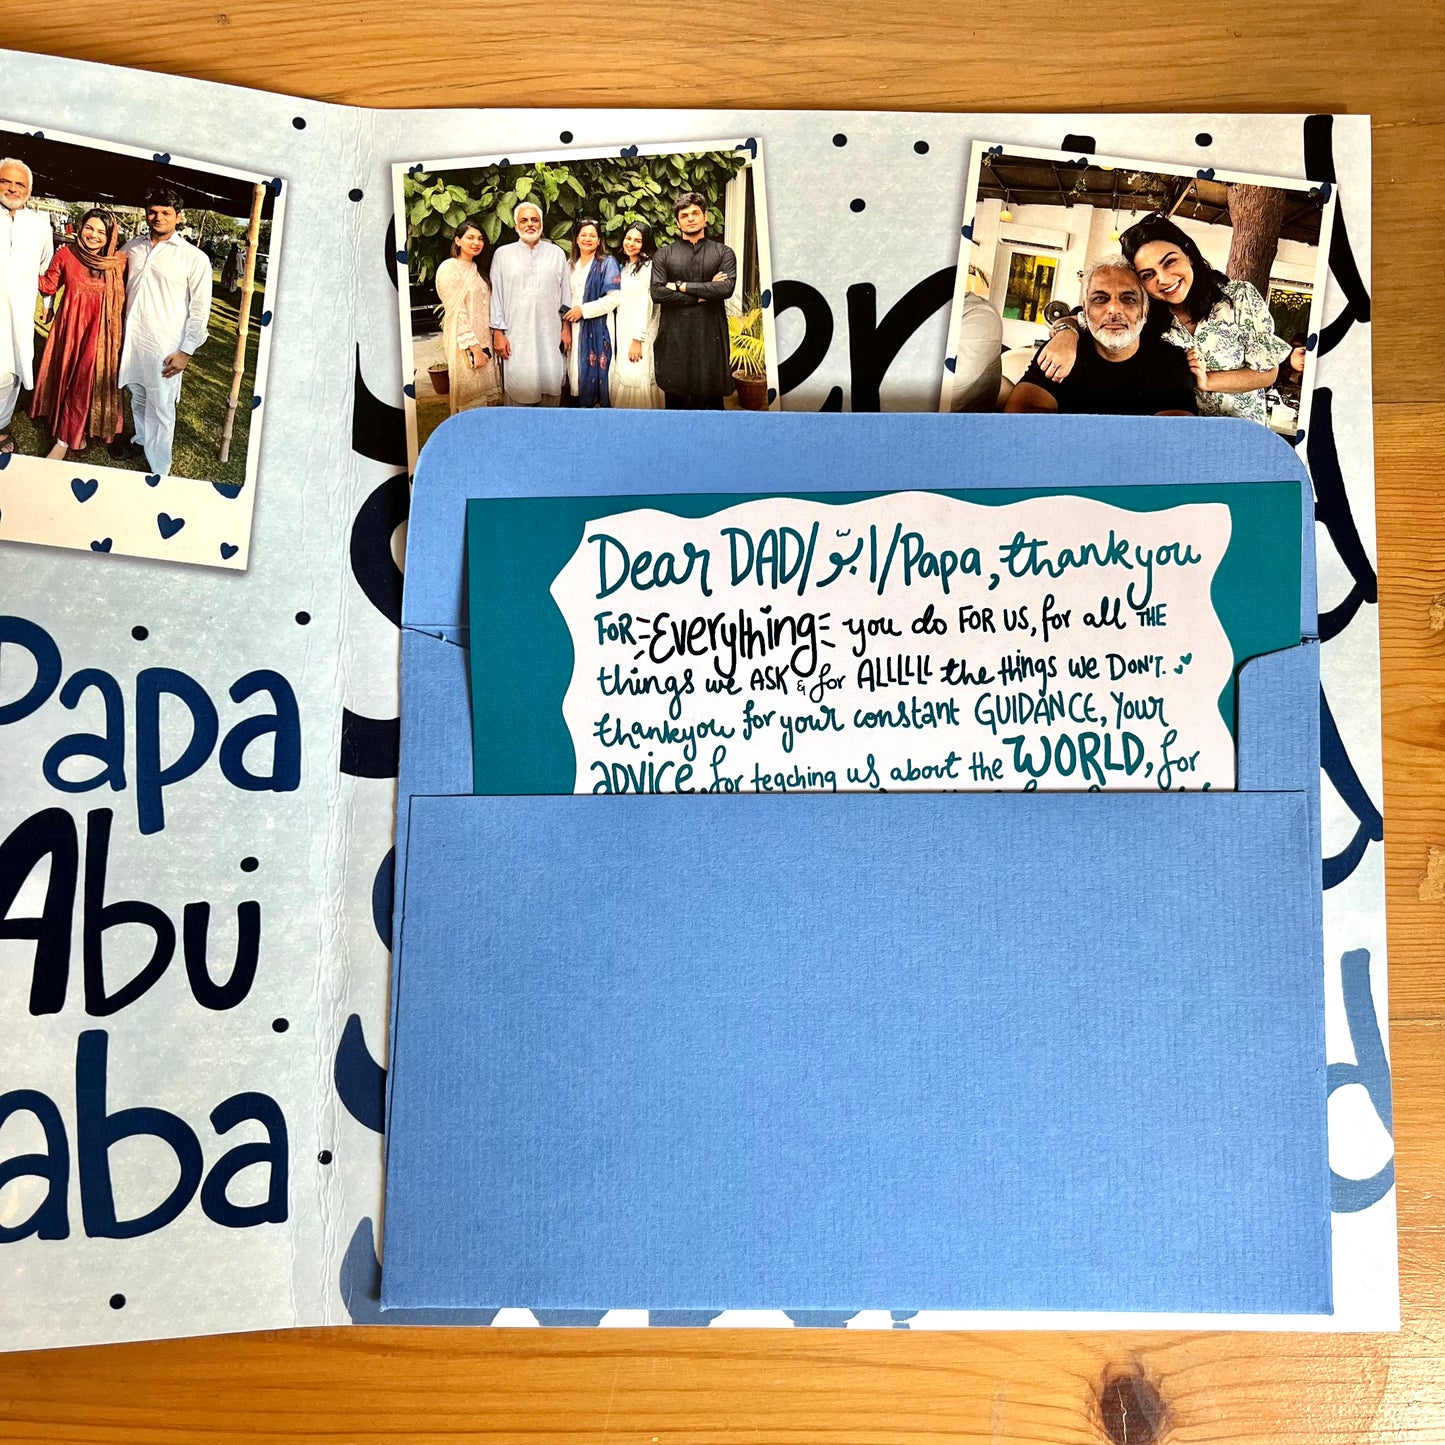 Papa
Abu
aba
Dear DAD/ابّو/Papa, thankyou
FOR Everything you do FOR US, for all THE
things we ASK & for ALLLLLL the things we DON'T.
thankyou for your constant GUIDANCE, YOUR
ADVICE, for teaching us about the WORLD, for